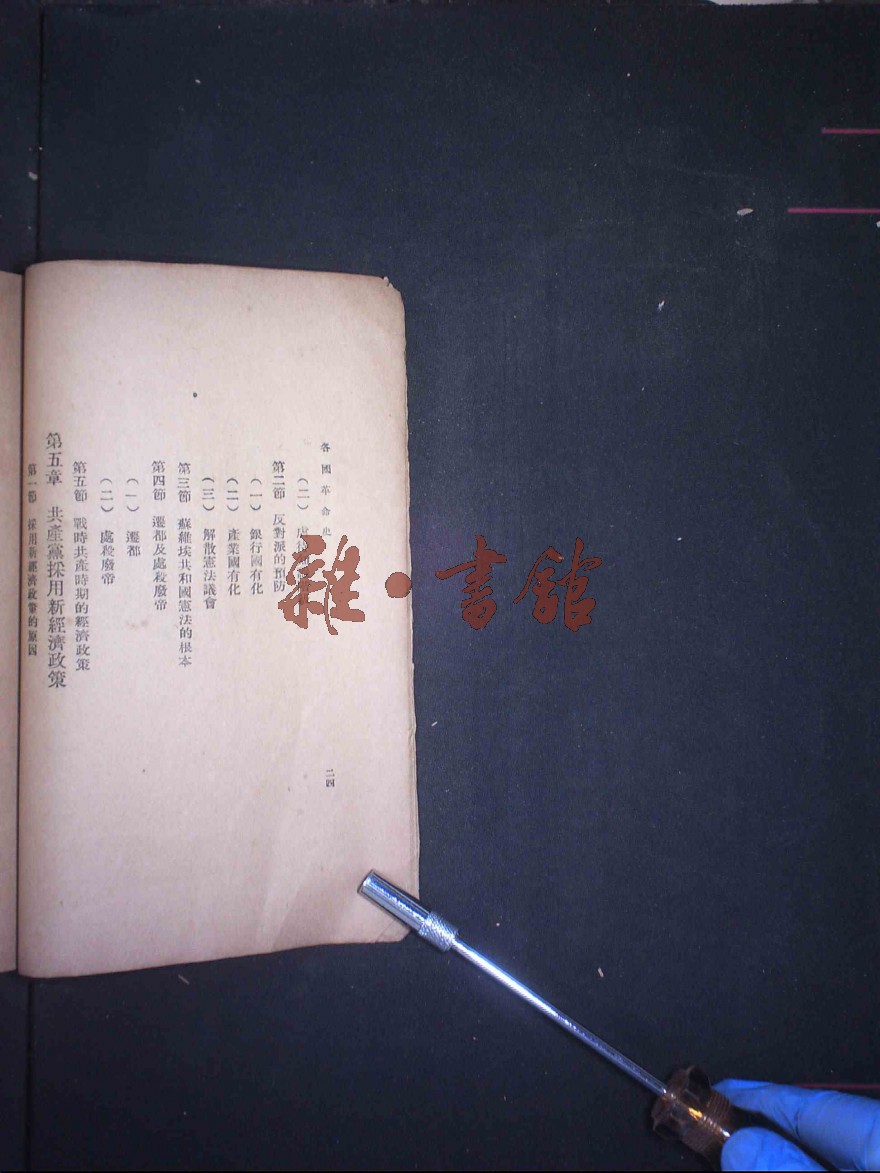 各國革命史
(二)
第二節 反對派的預防
(一) 銀行國有化
(二) 產業國有化
(三) 解散憲法議會
第三節 蘇維埃共和國憲法的根本
第四節 遷都及處殺廢帝
(一) 遷都
(二) 處殺廢帝
第五節 戰時共產時期的經濟政策
第五章 共產黨採用新經濟政策
第一節 採用新經濟政策的原因
二四
雜·書館